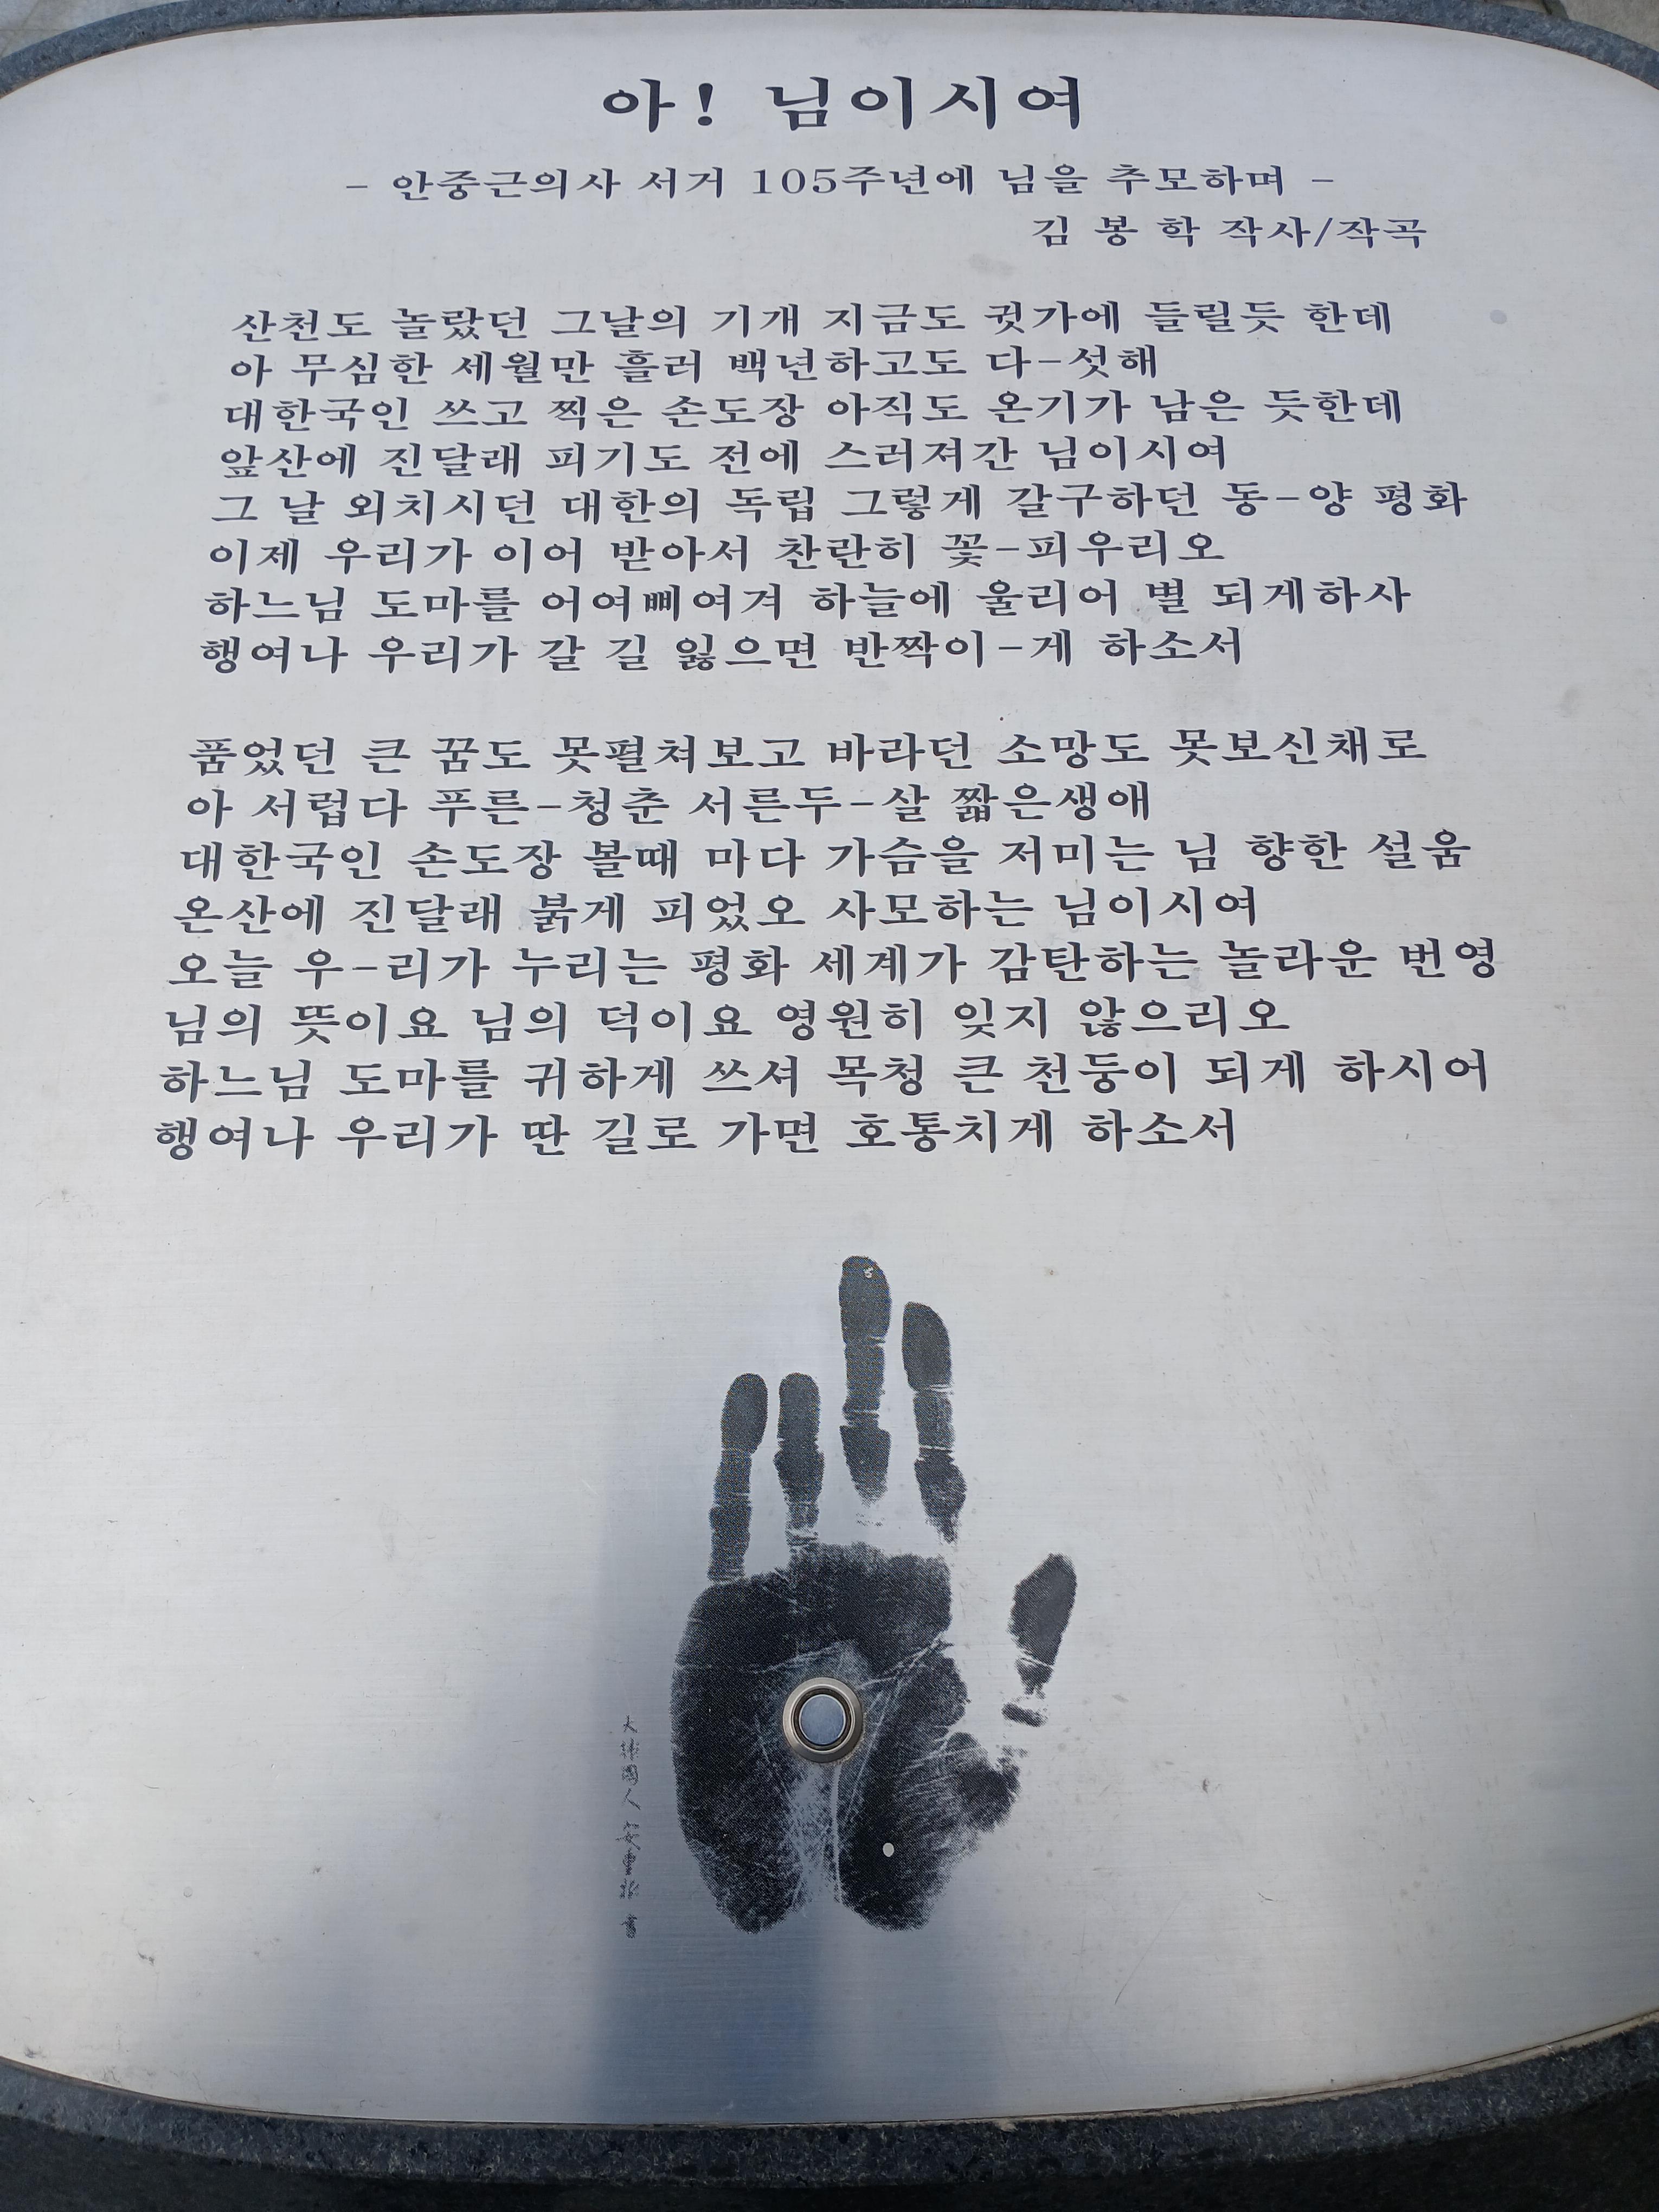 아! 님이시여
- 안중근의사 서거 105주년에 님을 추모하며 -
김 봉 학 작사/작곡
산천도 놀랐던 그날의 기개 지금도 귓가에 들릴듯 한데
아 무심한 세월만 흘러 백년하고도 다-섯해
대한국인 쓰고 찍은 손도장 아직도 온기가 남은 듯한데
앞산에 진달래 피기도 전에 스러져간 님이시여
그 날 외치시던 대한의 독립 그렇게 갈구하던 동-양 평화
이제 우리가 이어 받아서 찬란히 꽃-피우리오
하느님 도마를 어여삐여겨 하늘에 울리어 별 되게하사
행여나 우리가 갈 길 잃으면 반짝이-게 하소서
품었던 큰 꿈도 못펼쳐보고 바라던 소망도 못보신채로
아 서럽다 푸른-청춘 서른두-살 짧은생애
대한국인 손도장 볼때 마다 가슴을 저미는 님 향한 설움
온산에 진달래 붉게 피었오 사모하는 님이시여
오늘 우-리가 누리는 평화 세계가 감탄하는 놀라운 번영
님의 뜻이요 님의 덕이요 영원히 잊지 않으리오
하느님 도마를 귀하게 쓰셔 목청 큰 천둥이 되게 하시어
행여나 우리가 딴 길로 가면 호통치게 하소서
大韓國人 安重根 書